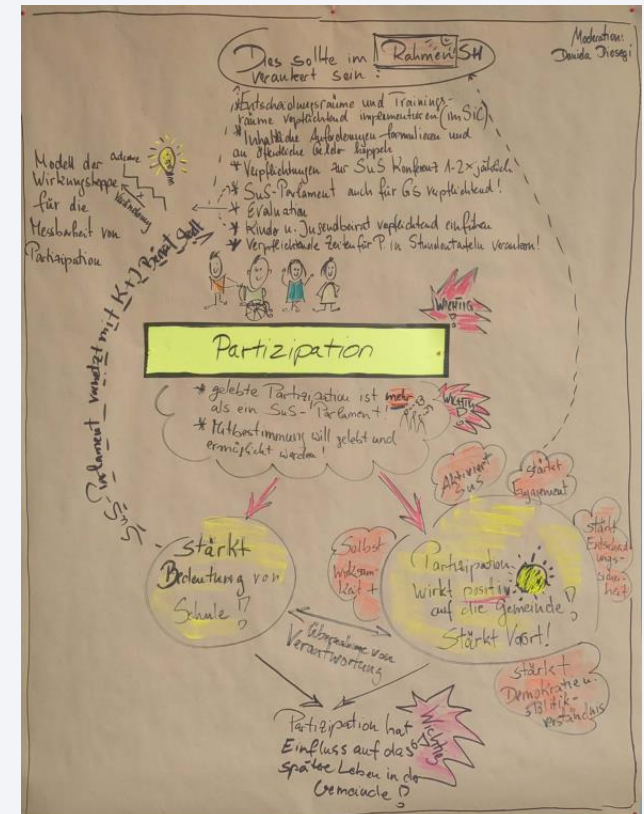 Moderation:
Dies sollte im Rahmen SH
verankert sein:
* Entscheidungsräume und Trainings-
räume verpflichtend implementieren (im SiC)
* Inhaltliche Anforderungen formulieren und
an öffentliche Gelder koppeln
* Verpflichtungen zur SuS Konferenz 1-2x jährlich
* SuS-Parlament auch für GS verpflichtend!
* Evaluation
* Kinder u. Jugendbeirat verpflichtend einführen
* Verpflichtende Zeiten für P. in Stundentafeln verankern!
Modell der
Wirkungstreppe
für die
Messbarkeit von
Partizipation
Outcome
SuS Parlament vernetzt mit K+J Beirat Stadt
WICHTIG!
Partizipation
* gelebte Partizipation ist mehr
als ein SuS-Parlament!
* Mitbestimmung will gelebt und
ermöglicht werden!
WICHTIG!
Aktiviert
SuS
stärkt
Engagement
stärkt
Entscheid
ungs-
sicher
heit
stärkt
Bedeutung von
Schule!
Selbst
wirksam
keit +
Partizipation
wirkt positiv
auf die Gemeinde!
Stärkt Vorort!
Übernahme von
Verantwortung
stärkt
Demokratie u.
Politik-
verständnis
Partizipation hat
Einfluss auf das
spätere Leben in der
Gemeinde!
Wichtig!